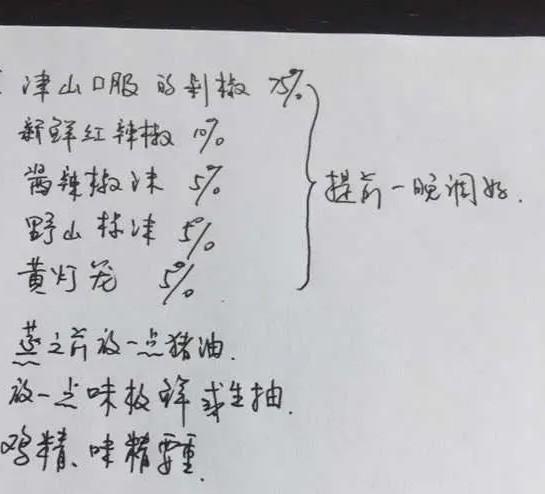 津山口服的剁椒 75%
新鲜红辣椒 10%
酱辣椒沫 5%
野山椒沫 5%
黄灯笼 5%
提前一晚调好.
蒸之前放一点猪油.
放一点味极鲜或生抽.
鸡精、味精要重.